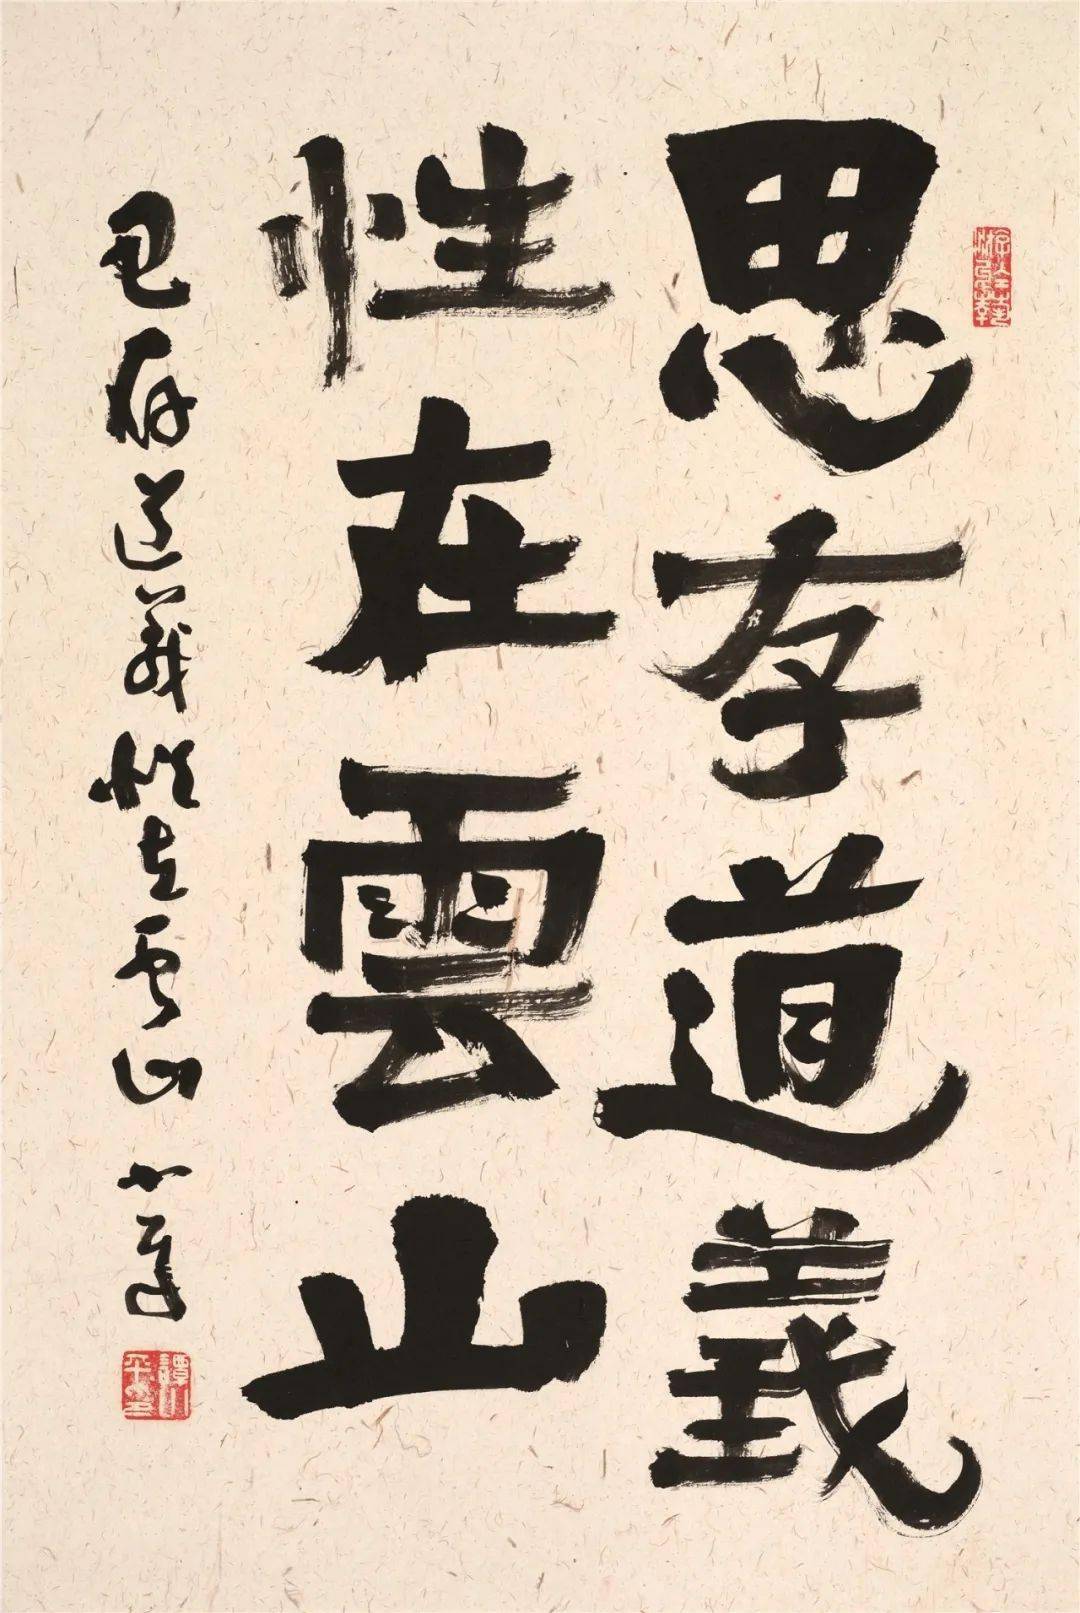 思存道義
性在雲山
思存道義性在雲山 小平